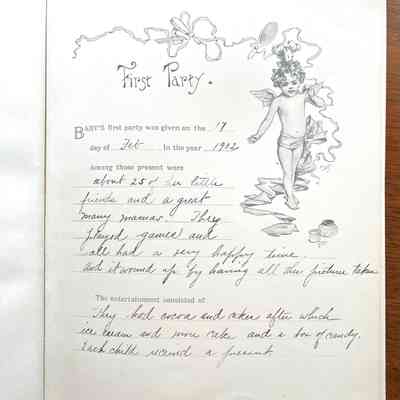 First Party.
BABY'S first party was given on the 17
day of Feb in the year 1902
Among those present were
about 25 of her little
friends and a great
many mamas. They
played games and
all had a very happy time.
And it wound up by having all their picture taken
The entertainment consisted of
They had cocoa and cakes after which
ice cream and more cake and a box of candy.
Each child received a present.